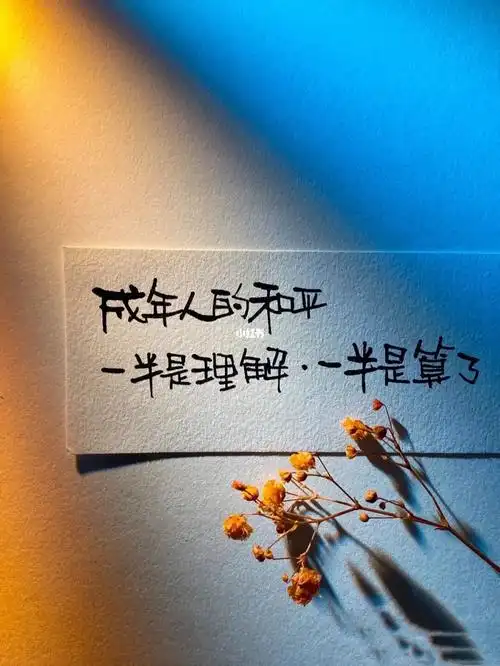 成年人的和平
小红书
一半是理解·一半是算了